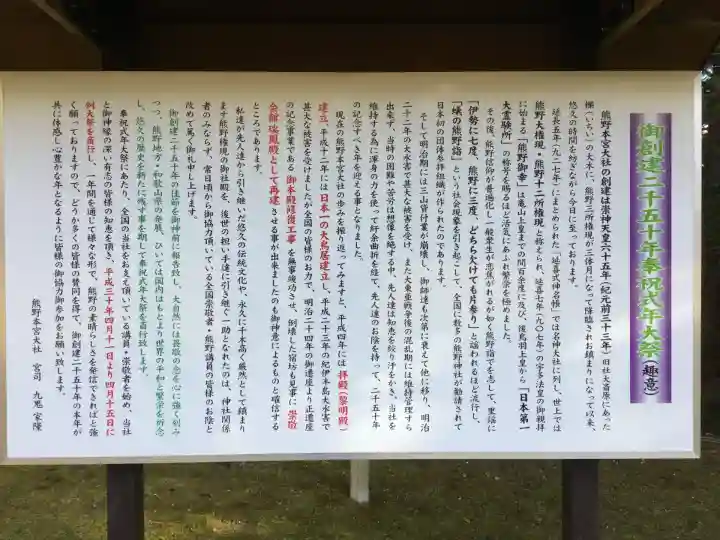 御創建二千五十年奉祝式年大祭（趣意）
熊野本宮大社の創建は崇神天皇六十五年（紀元前三十三年）旧社大斎原にあった
櫟（いちい）の大木に、熊野三所権現が三体月になって降臨されお鎮まりになって以来、
悠久の時間を紡ぎながら今日に至っております。
延長五年（九二七年）にまとめられた「延喜式神名帳」では名神大社に列し、世上では
熊野大権現・熊野十二所権現と称えられ、延喜七年（九〇七年）の宇多法皇の御親拝
に始まる「熊野御幸」は亀山上皇までの間百余度に及び、後鳥羽上皇から「日本第一
大霊験所」の称号を賜るほど活気にあふれ繁栄を極めました。
その後、熊野信仰が普遍化し一般衆生が悲願がれるが如く熊野詣でを志して、里謡に
「伊勢に七度、熊野に三度、どちら欠けても片参り」と謳われるほど流行し、
「蟻の熊野詣」という社会現象を引き起こして、全国に数多の熊野神社が勧請されて
日本初の団体参拝組織が作られたのであります。
そして明治期には三山貸付業が崩壊し、御師達も次第に衰えて他に移り、明治
二十二年の大水害で甚大な被害を受け、また大東亜戦争後の混乱期には維持管理すら
出来ず、当時の困難や苦労は想像を絶する中、先人達は知恵を絞り汗をかき、当社を
維持する為に渾身の力を使って紆余曲折を経て、先人達のお陰を持って、二千五十年
の記念すべき年を迎える事となりました。
現在の熊野本宮大社の歩みを振り返ってみますと、平成四年には拝殿（黎明殿）
建立、平成十二年には日本一の大鳥居建立し、平成二十三年の紀伊半島大水害で
甚大な被害を受けましたが全国の皆様のお力で、明治二十四年の御遷座より正遷座
の記念事業である御本殿修復工事を無事竣功させ、倒壊した宿坊も見事に崇敬
会館瑞鳳殿として再建させる事が出来ましたのも御神意によるものと確信する
ところであります。
私達が先人達から引き継いだ悠久の伝統文化や、永久に千木高く厳然として鎮まり
ます熊野権現の御社殿を、後世の担い手達に引き継ぐ一助となれたのは、神社関係
者のみならず、常日頃から御協力頂いている全国崇敬者・熊野講員の皆様のお陰と
改めて篤く御礼申し上げます。
御創建二千五十年の佳節を御神前に報告致し、大自然には畏敬の念を心に強く刻み
つつ、熊野地方・和歌山県の発展、ひいては国内はもとより世界の平和と繁栄を祈念
し、悠久の歴史を新たに残す事を期して奉祝式年大祭を斎行致します。
奉祝式年大祭にあたり、全国の当社をお支え頂いている講員・崇敬者を始め、当社
と御神縁の深い有志の皆様の御知恵を頂き、平成三十年四月十一日より四月十五日に
例大祭を斎行し、一年間を通じて様々な形で、熊野の素晴らしさを発信できればと強
く願っておりますので、どうか多くの皆様の賛同を得て、御創建二千五十年の本年が
共に体感し心豊かな年となるように皆様の御協力御参加をお願い致します。
熊野本宮大社　宮司　九鬼　家隆